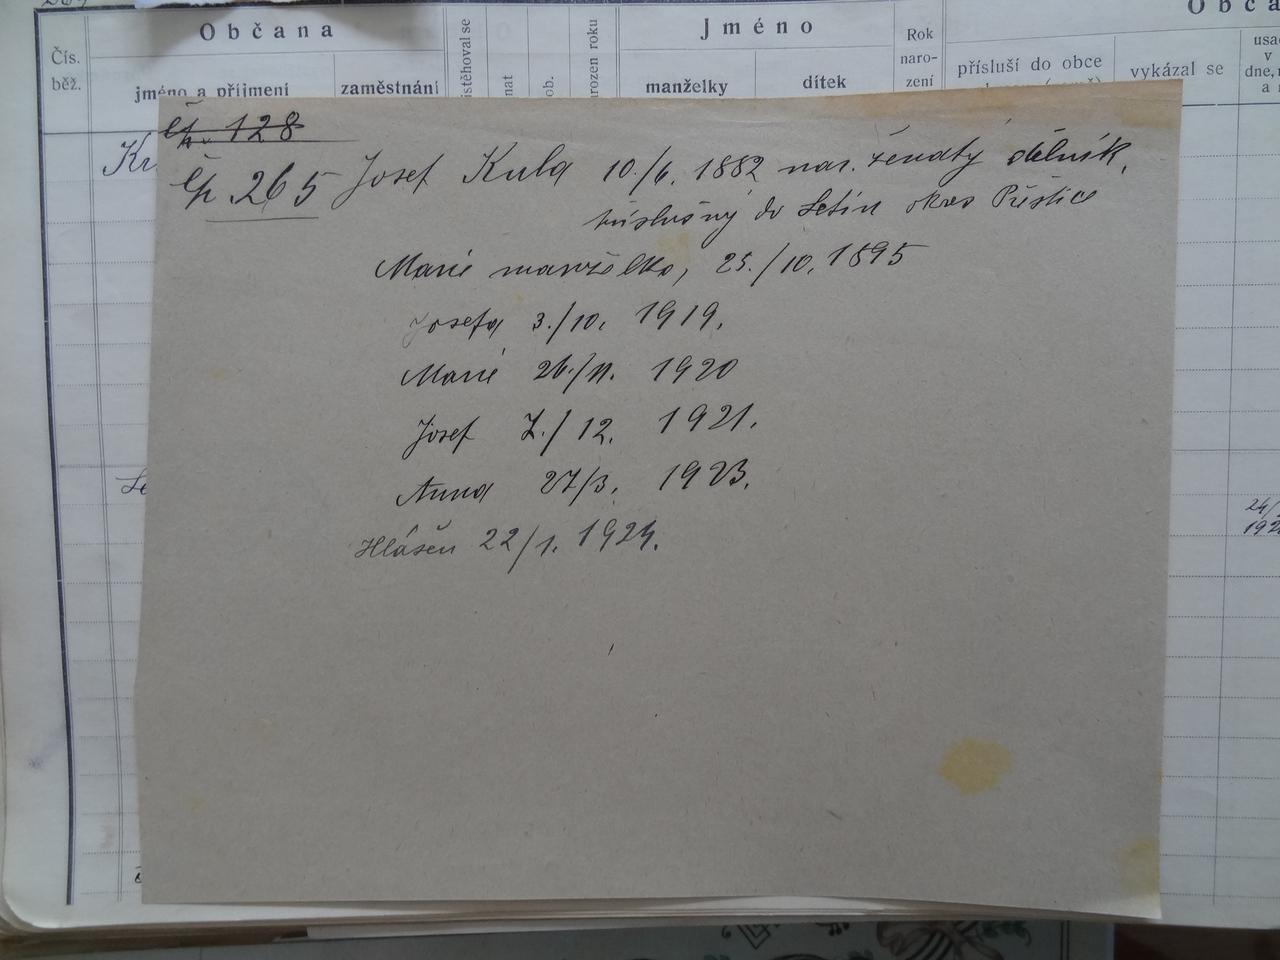 Občana
Jméno
Občana
Čís. běž.
jméno a příjmení
zaměstnání
manželky
dítek
Rok naro- zení
přísluší do obce
vykázal se
čp. 128
čp. 265 Josef Kula 10./6. 1882 nar. ženatý dělník,
příslušný do Letin okres Přeštice
Marie manželka, 25./10. 1895
Josefa 3./10. 1919.
Marie 26./11. 1920
Josef 7./12. 1921.
Anna 27/3. 1923.
Hlášen 22/1. 1924.